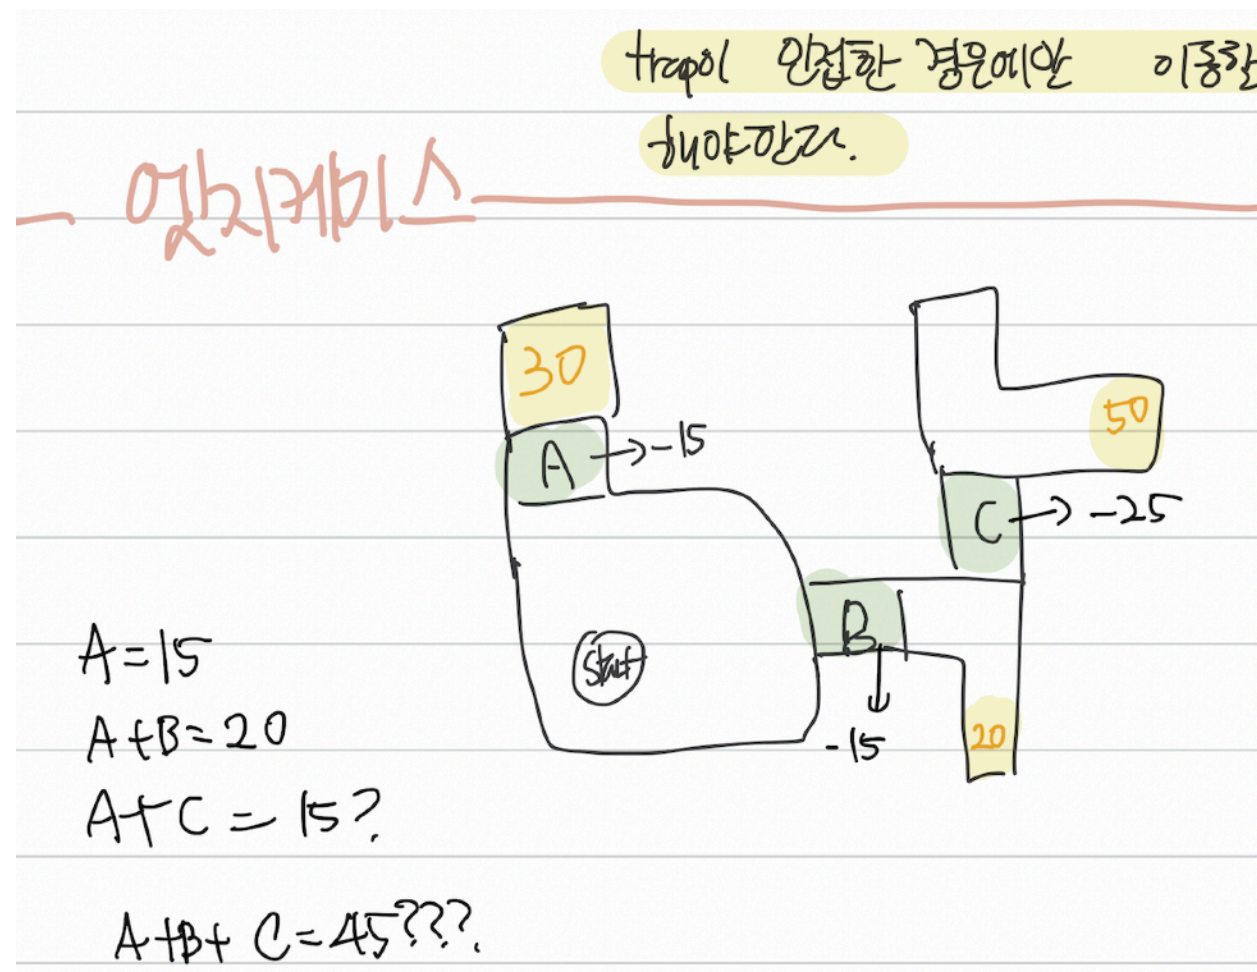 trap이 인접한 경우에만 이동할
해야한다.
엣지케이스
30
50
A → -15
C → -25
B
Start
A=15
A+B=20
20
-15
A+C = 15?
A+B+ C=45???.